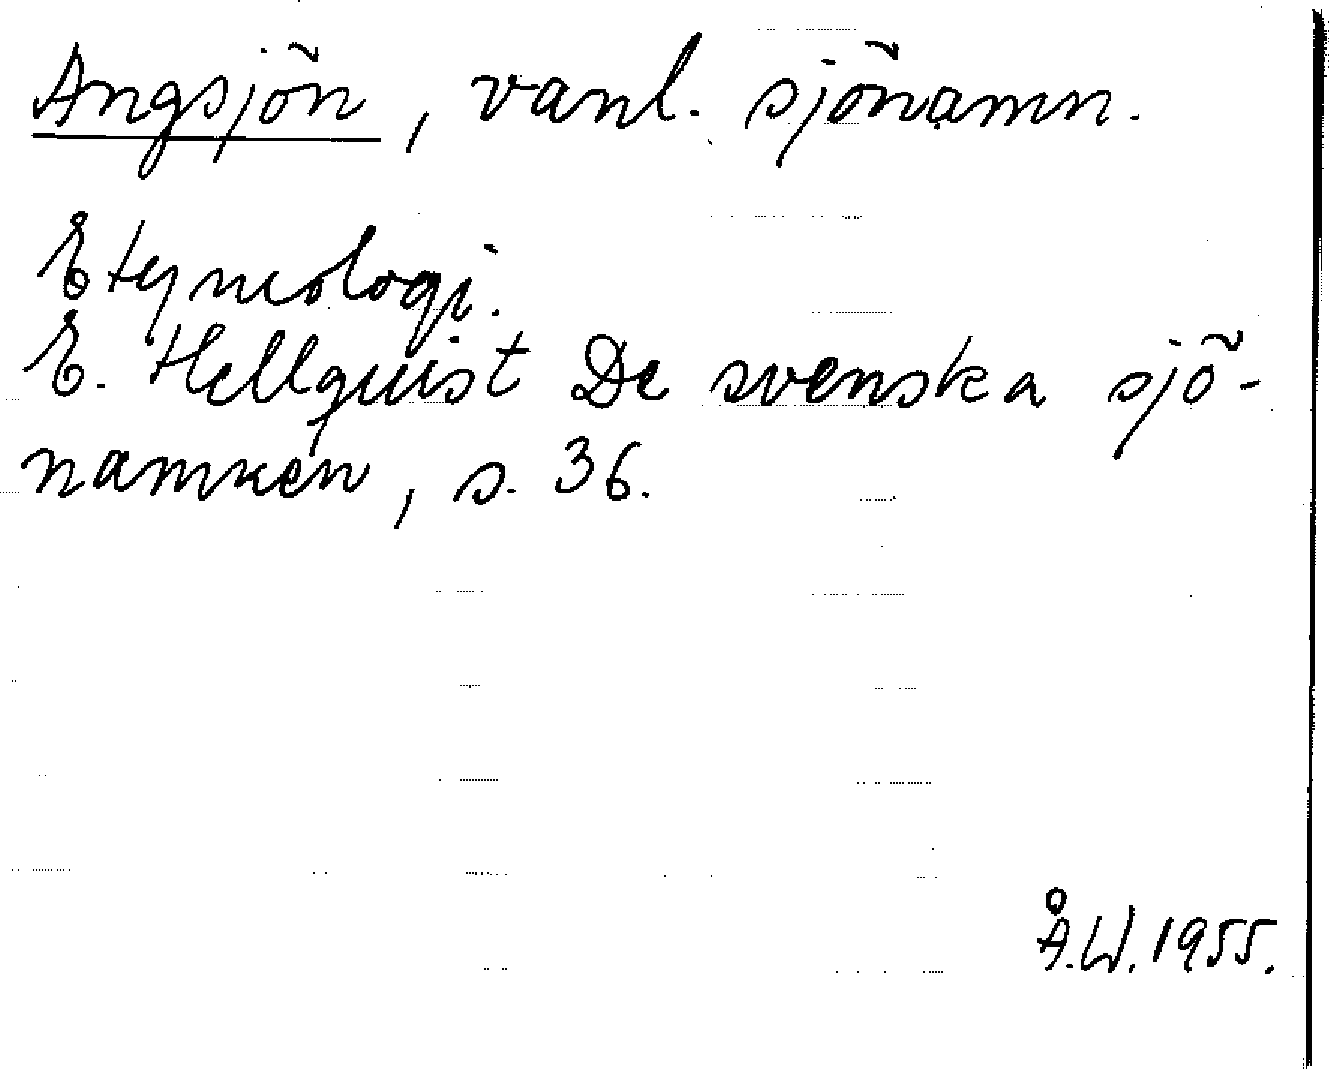 Angsjön, vanl. sjönamn.
Etymologi.
E. Hellquist De svenska sjö-
namnen, s. 36.
Å.W. 1955.